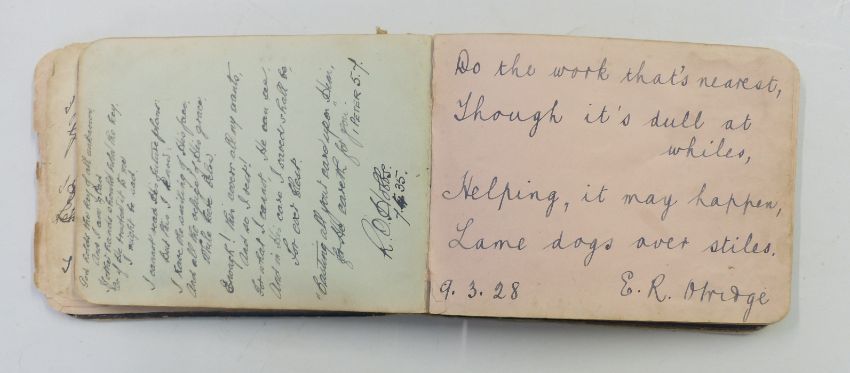 God holds the key of all unknown
And I am glad
If other hands should hold the key,
Or if He trusted it to me
I might be sad.
I cannot read His future plans
But this I know
I have the smiling of His face,
And all the refuge of His grace
While here below
Enough! this covers all my wants,
And so I rest!
For what I cannot, He can see
And in His care I saved shall be
For ever blest.
"Casting all your care upon Him,
for He careth for you"
1 PETER 5.7.
Do the work that's nearest,
Though it's dull at
whiles,
Helping, it may happen,
Lame dogs over stiles.
9.3.28 E. R. Otridge